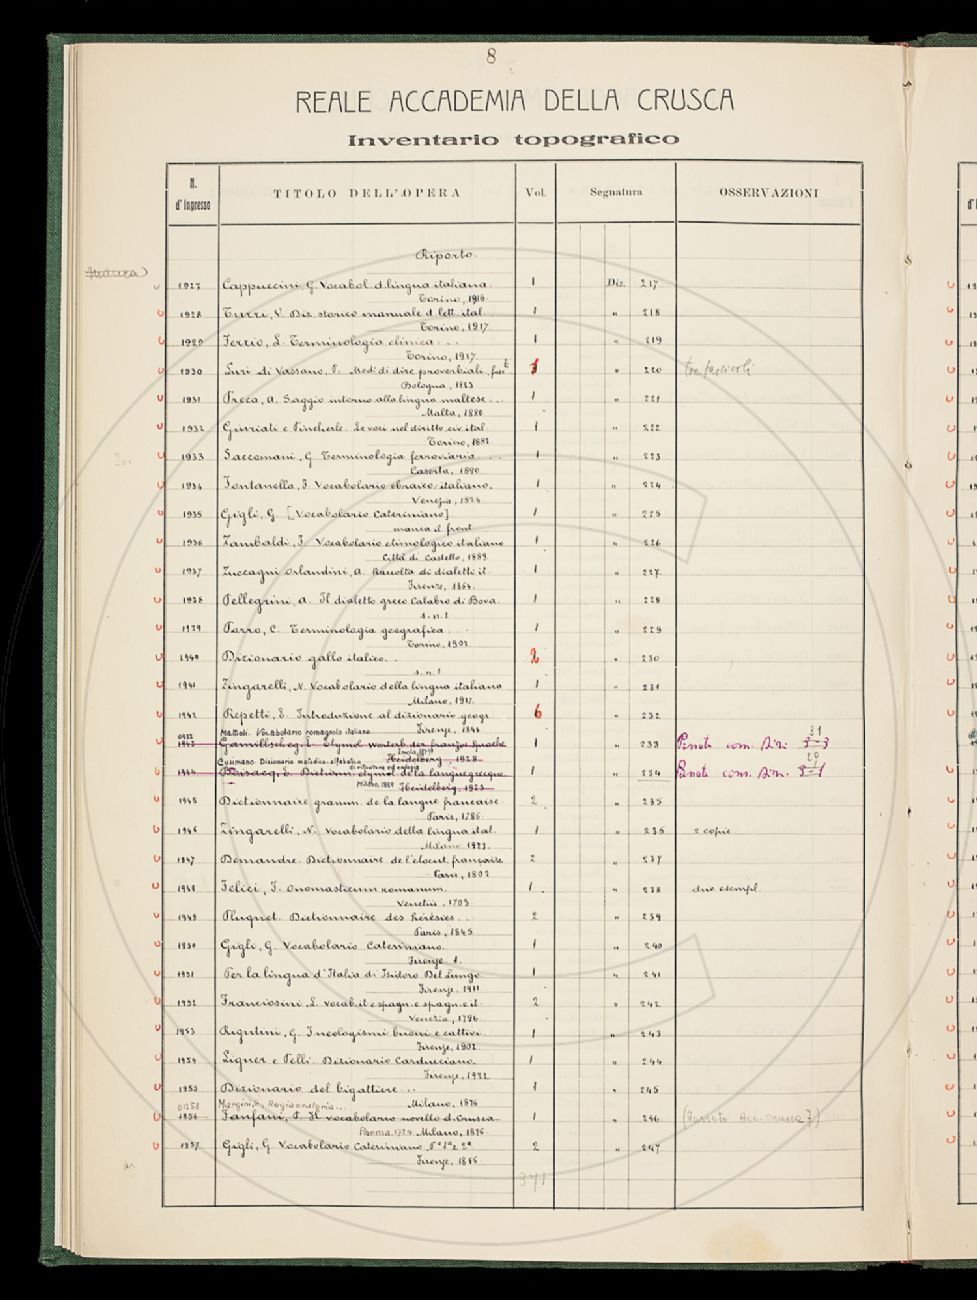 8
REALE ACCADEMIA DELLA CRUSCA
Inventario topografico
N. d'Ingresso TITOLO DELL'OPERA Vol. Segnatura OSSERVAZIONI
Riporto.
1927 Cappuccini, G. Vocabol. d. lingua italiana. 1 Diz. 217
Torino, 1916.
1928 Turri, V. Diz. storico manuale d. lett. ital. 1 " 218
Torino, 1917.
1929 L. Terminologia clinica... 1 " 219
Torino, 1917.
1930 Luri di Vassano, P. Modi di dire proverbiali, " 220 tre fascicoli
Bologna, 1883
1931 Preca, A. Saggio intorno alla lingua maltese... 1 " 221
Malta, 1880.
1932 Giuriati e Pincherle. Le voci nel diritto civ. ital. 1 " 222
Torino, 1882
1933 Saccomani, G. Terminologia ferroviaria... 1 " 223
Caserta, 1890
1934 Fontanella, F. Vocabolario ebraico-italiano. 1 " 224
Venezia, 1824
1935 Gigli, G. [Vocabolario Cateriniano] 1 " 225
manca il front.
1936 Zambaldi, F. Vocabolario etimologico italiano 1 " 226
Città di Castello, 1889.
1937 Zuccagni Orlandini, A. Raccolta di dialetti it. 1 " 227
Firenze, 1864.
1938 Pellegrini, A. Il dialetto greco Calabro di Bova. 1 " 228
s.n.t.
1939 Porro, C. Terminologia geografica... 1 " 229
Torino, 1902
1940 Dizionario gallo italico.. 2 " 230
s.n.t.
1941 Zingarelli, N. Vocabolario della lingua italiana 1 " 231
Milano, 1917.
1942 Repetti, E. Introduzione al dizionario geogr. 6 " 232
Firenze, 1846
Mattioli. Vocabolario romagnolo italiano
Imola, 1879
1943 Gamillscheg, E. Etymol. wörterb. der franzos. Sprache 1 " 233
Heidelberg, 1928
Cusimano. Dizionario metodico-alfabetico
di viticultura ed enologia
Milano, 1889
1944 Boisacq, E. Dictionn. etymol. de la langue grecque 1 " 234
Heidelberg, 1923
1945 Dictionnaire gramm. de la langue francaise 2 " 235
Paris, 1786.
1946 Zingarelli, N. Vocabolario della lingua ital. 1 " 236 2 copie
Milano 1923.
1947 Demandre. Dictionnaire de l'eloent. française 2 " 237
Paris, 1802
1948 Felici, F. Onomasticum romanum. 1 " 238 due esempl.
Venetiis, 1703
1949 Pluquet. Dictionnaire des hérésies... 2 " 239
Paris, 1845
1950 Gigli, G. Vocabolario Cateriniano. 1 " 240
1951 Per la lingua d'Italia di Isidoro Del Lungo. 1 " 241
Firenze, 1911
1952 Franciosini, L. Vocab. it. e spagn. e spagn. e it. 2 " 242
Venezia, 1796.
1953 Rigutini, G. I neologismi buoni e cattivi. 1 " 243
Firenze, 1902.
1954 Liguer e Pelli. Dizionario Carducciano. 1 " 244
Firenze, 1922
1955 Dizionario del bigattiere... 1 " 245
Milano, 1876
01258
1956 Fanfani, P. Il vocabolario novello d. Crusca 1 " 246
Parma 1724 Milano, 1876.
1957 Gigli, G. Vocabolario Cateriniano 2 " 247
Firenze, 1866
371